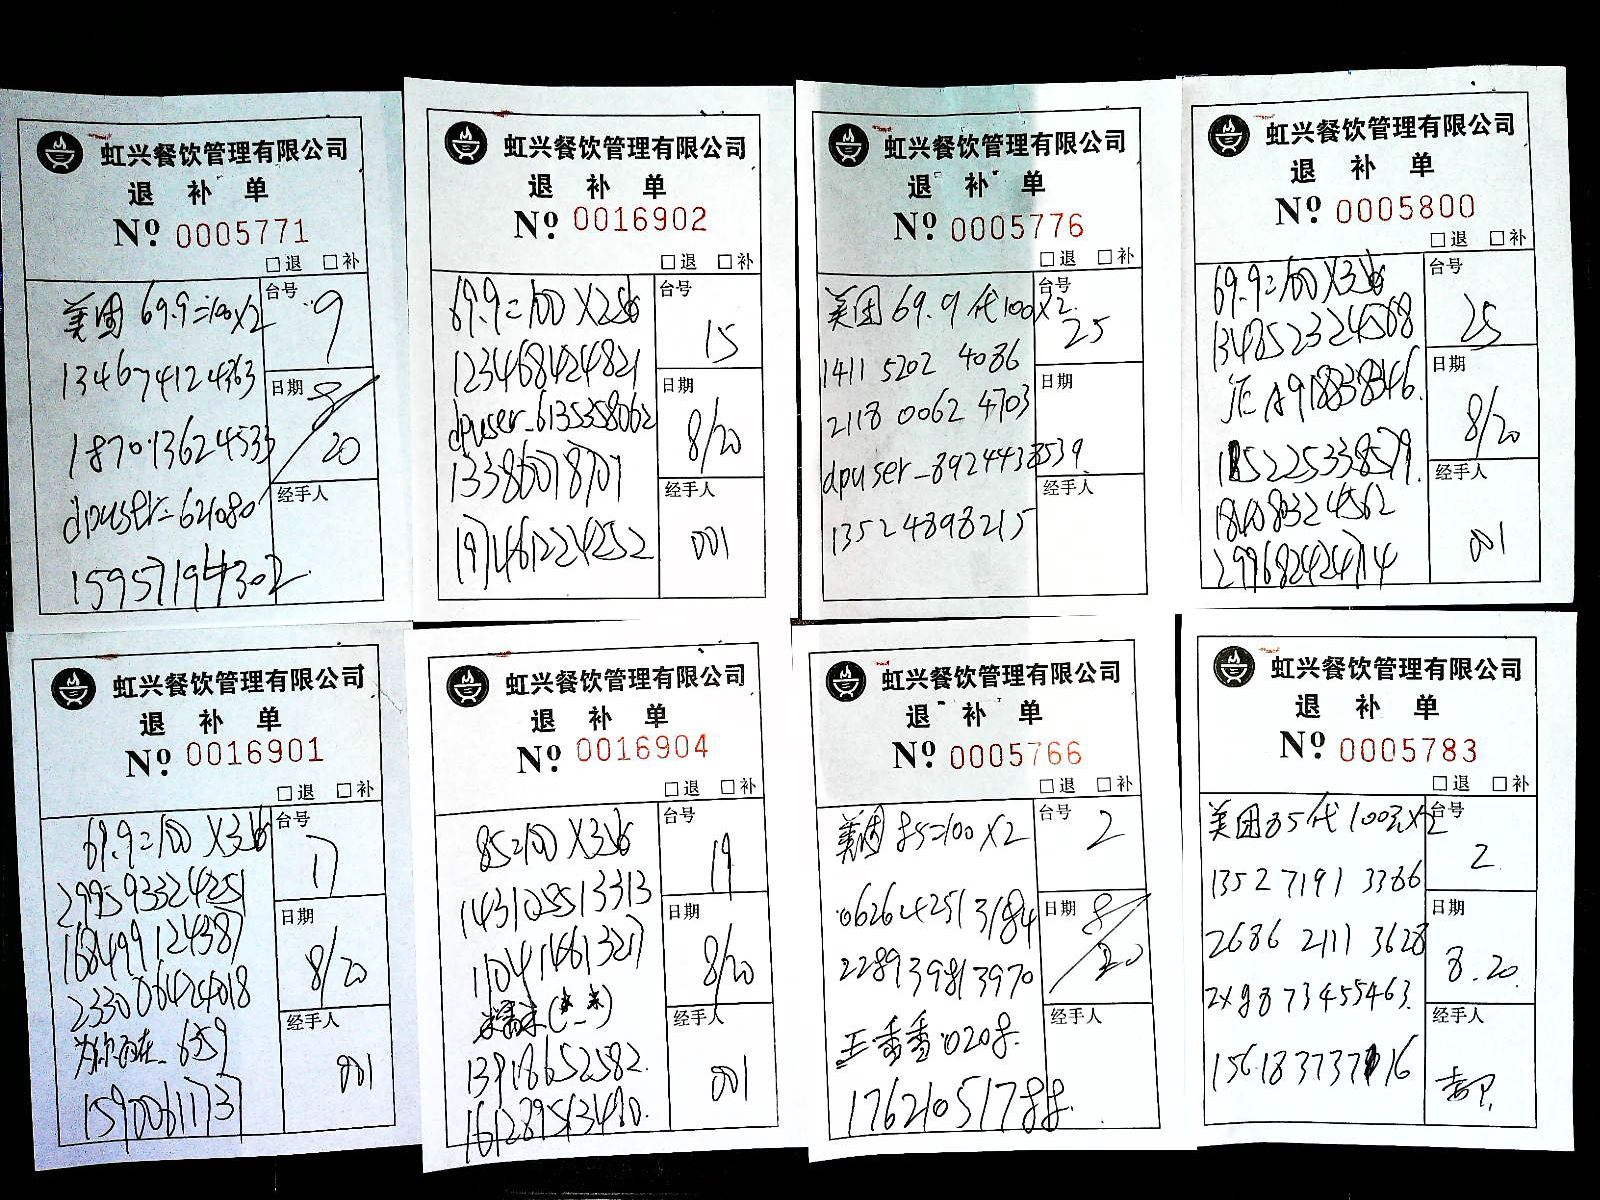 虹兴餐饮管理有限公司
退 补 单
Nº 0005771
□退 □补
美团 69.9=100X2
台号 9
134674124363
日期 8/20
187013624533
经手人
dpuser-621080
15957194302
虹兴餐饮管理有限公司
退 补 单
Nº 0016902
□退 □补
69.9=100 X2
台号 15
123468424821
日期 8/20
dpuser-6135558062
13386078707
经手人 001
197461224252
虹兴餐饮管理有限公司
退 补 单
Nº 0005776
□退 □补
美团 69.9代100X2
台号 25
1411 5202 4086
日期
2118 0062 4703
dpuser-8924438539
经手人
13524898215
虹兴餐饮管理有限公司
退 补 单
Nº 0005800
□退 □补
69.9=100X3
台号 25
134852324568
日期 8/20
A918838346
185225338579
经手人 001
184083324562
299682424714
虹兴餐饮管理有限公司
退 补 单
Nº 0016901
□退 □补
69.9=100 X3
台号 17
299593324251
日期 8/20
168499124387
233006424018
经手人 001
6359
15900611731
虹兴餐饮管理有限公司
退 补 单
Nº 0016904
□退 □补
85=100 X3
台号 19
1431025513313
日期 8/20
110414613217
经手人 001
13918652582
161289513490
虹兴餐饮管理有限公司
退 补 单
Nº 0005766
□退 □补
美团 85=100 X2
台号 2
062642513184
日期 8/20
228939813970
经手人
王香香0208
17621051788
虹兴餐饮管理有限公司
退 补 单
Nº 0005783
□退 □补
美团85代100元X2
台号 2
1352 7191 3386
日期 8.20
2686 2111 3628
zxg873455463
经手人
1561837371 16